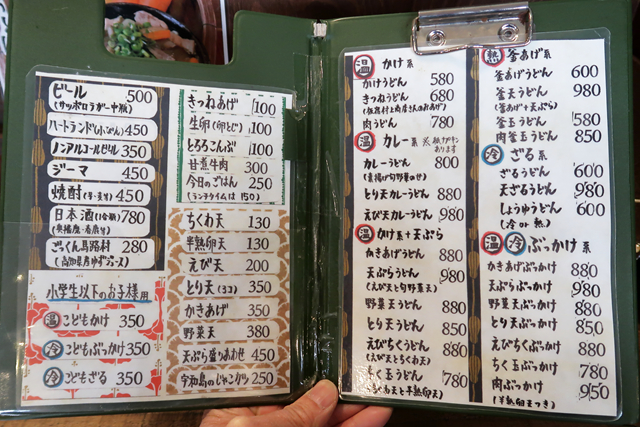 ビール 500
(サッポロラガー中瓶)
ハートランド(小びん) 450
ノンアルコールビール 350
ジーマ 450
焼酎(芋・麦) 450
日本酒(1合瓶) 780
(奥播磨・春鹿)
ごっくん馬路村 280
(高知県産ゆずジュース)
小学生以下のお子様用
温 こどもかけ 350
冷 こどもぶっかけ 350
冷 こどもざる 350
きつねあげ 100
生卵(卵とじ) 100
とろろこんぶ 100
甘煮牛肉 300
今日のごはん 250
(ランチタイムは150)
ちくわ天 130
半熟卵天 130
えび天 200
とり天(3コ) 350
かきあげ 350
野菜天 380
天ぷら盛りあわせ 450
宇和島のじゃこカツ 250
温 かけ系
かけうどん 580
きつねうどん 680
肉うどん 780
温 カレー系
あります
カレーうどん 800
(素揚げ旬野菜のせ)
とり天カレーうどん 880
えび天カレーうどん 980
温 かけ系+天ぷら
かきあげうどん 880
天ぷらうどん 980
(えび天と旬野菜天)
野菜天うどん 880
とり天うどん 850
えびちくうどん 880
(えび天とちくわ天)
ちく玉うどん 780
(ちくわ天と半熟卵天)
熱 釜あげ系
釜あげうどん 600
釜天うどん 980
(釜あげ+天ぷら)
釜玉うどん 580
肉釜玉うどん 850
冷 ざる系
ざるうどん 600
天ざるうどん 980
しょうゆうどん 600
(冷or熱)
温 冷 ぶっかけ系
かきあげぶっかけ 880
天ぷらぶっかけ 980
野菜天ぶっかけ 880
とり天ぶっかけ 850
えびちくぶっかけ 880
ちく玉ぶっかけ 780
肉ぶっかけ 950
(半熟卵天つき)